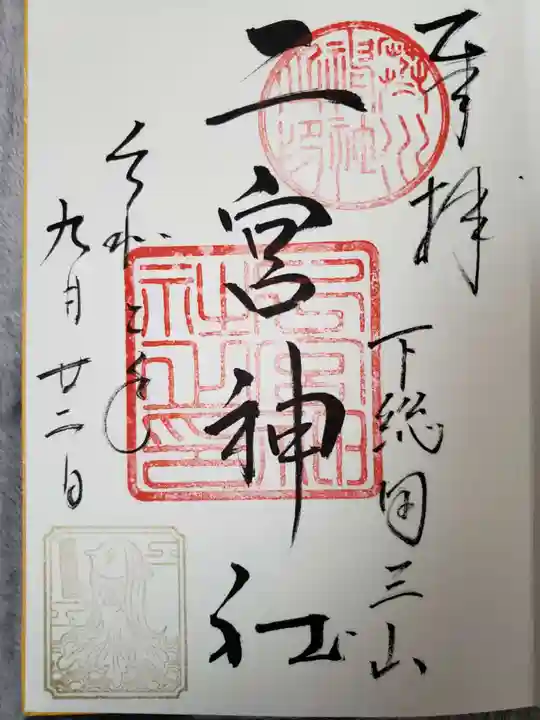 奉拝
下総国三山
二宮神社
令和二年
九月廿二日